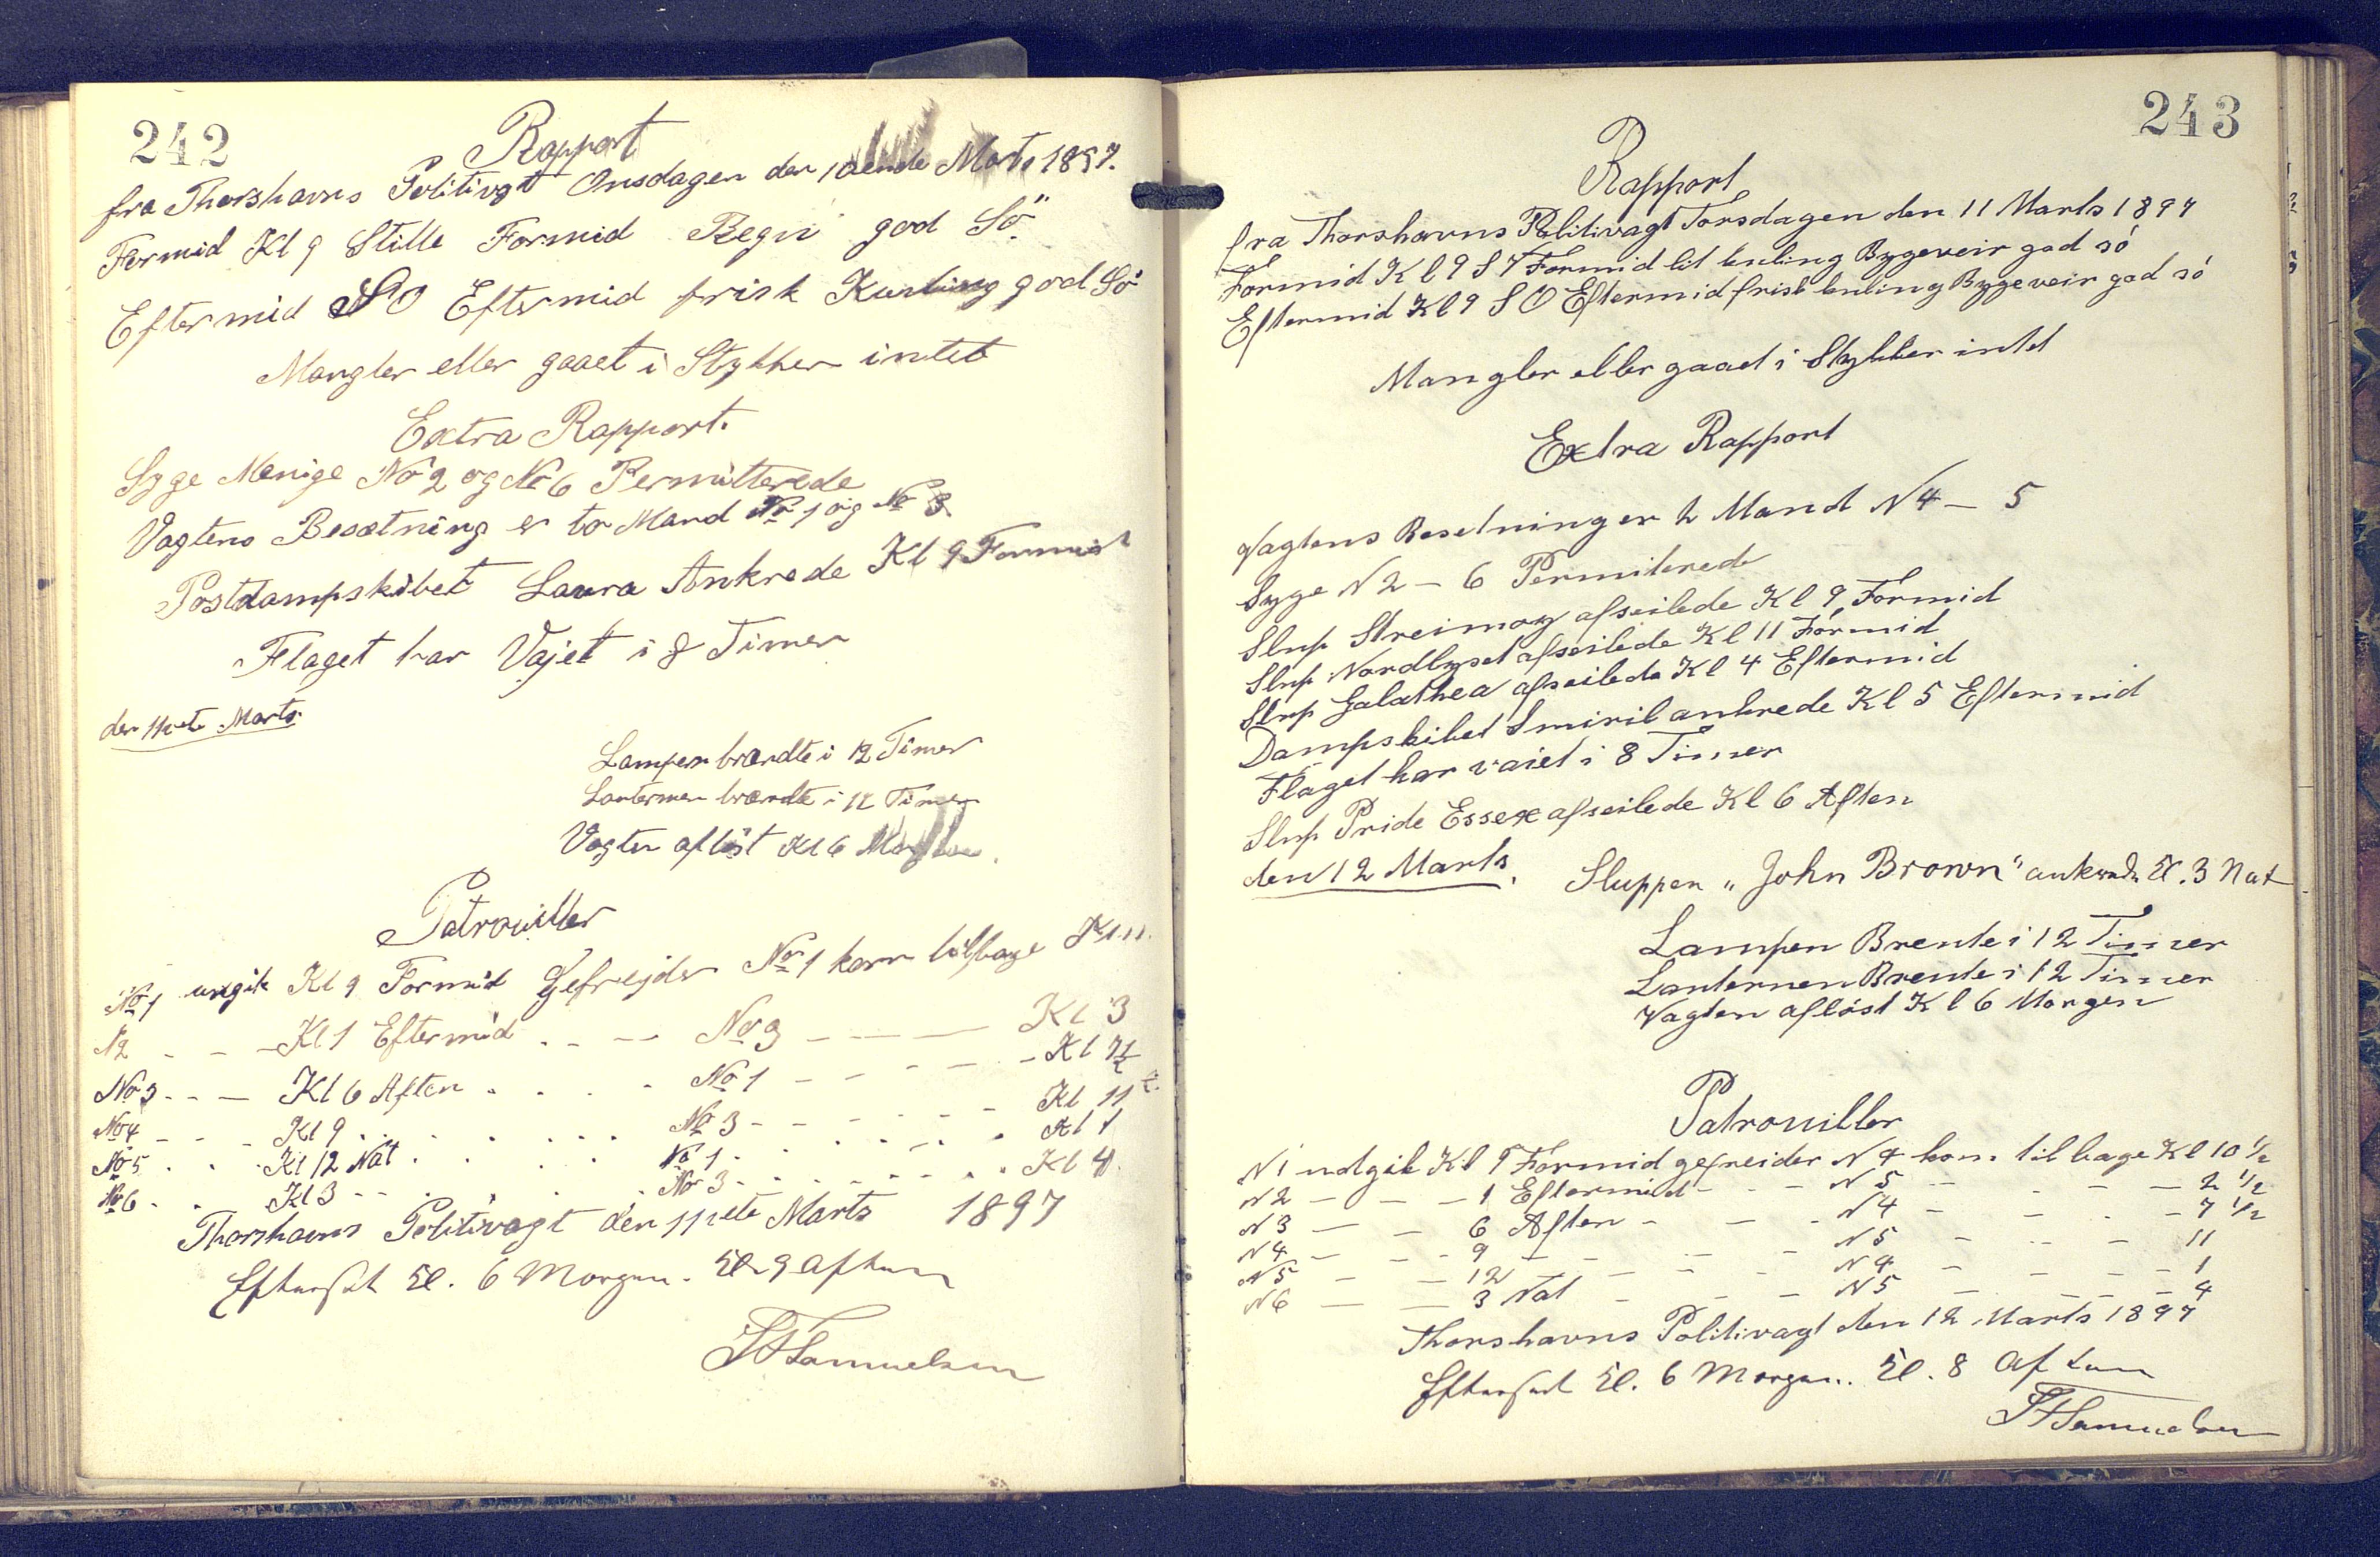 242
Rapport
fra Thorshavns Politivagt Onsdagen den 10ende Marts 1897.
Formid Kl 9 Stille Formid Regn god Sö
Eftermid SO Eftermid frisk Kuling god Sö
Mangler eller gaaet i Stykker intet
Extra Rapport.
Syge Menige No 2 og No 6 Permitterede
Vagtens Besætning er to Mand No 1 og No 3
Postdampskibet Laura Ankrede Kl 9 Formid
Flaget har Vajet i 8 Timer
den 11te Marts.
Lampen brændte i 12 Timer
Lanternen brændte i 12 Timer
Vagten aflöst Kl 6 Morgen.
Patrouiller
No 1 ungik Kl 9 Formid Gefrejder No 1 kom tilbage Kl 11.
N2 - - - Kl 1 Eftermid . - - No 3 - - - Kl 3
No 3 - - - Kl 6 Aften . . . . No 1 - - - - Kl 7½
No 4 - - - Kl 9 . . . . . . No 3 - - - - - Kl 11
No 5 . . . Kl 12 Nat . . . . No 1 . . . . . Kl 1
No 6 - . . Kl 3 - - . . . No 3 - . . . . . Kl 4.
Thorshavns Politivagt den 11te Marts 1897
Efterset Kl. 6 Morgen. Kl. 9 Aften
Samuelsen
243
Rapport
fra Thorshavns Politivagt Torsdagen den 11 Marts 1897
Formid Kl 9 S V Formid lit kuling Bygeveir god só
Eftermid Kl 9 S O Eftermid frisk kuling Bygeveir god só
Mangler eller gaaet i Stykker intet
Extra Rapport
Vagtens Besetning er 2 Mand N 4 - 5
Syge N 2 - 6 Permiterede
Slup Streimoy afseilede Kl 9 Formid
Slup Nordlyset afseilede Kl 11 Formid
Slup Galathea afseilede Kl 4 Eftermid
Dampskibet Smiril ankrede Kl 5 Eftermid
Flaget har vaiet i 8 Timer
Slup Pride Essex afseilede Kl 6 Aften
den 12 Marts. Sluppen "John Brown" ankrede Kl. 3 Nat
Lampen Brente i 12 Timer
Lanternen Brente i 12 Timer
Vagten aflöst Kl 6 Morgen
Patrouiller
N 1 udgik Kl 9 Formid gefreider N 4 kom tilbage Kl 10 ½
N 2 - - - 1 Eftermid - - - N 5 - - - - 2 ½
N 3 - - 6 Aften - - - N 4 - - - - 7 ½
N 4 - - - 9 - - - - N 5 - - - 11
N 5 - - 12 - - - - N 4 - - - - 1
N 6 - - 3 Nat - - - N 5 - - - - 4
Thorshavns Politivagt den 12 Marts 1897
Efterset Kl. 6 Morgen. Kl. 8 Aften
Samuelsen